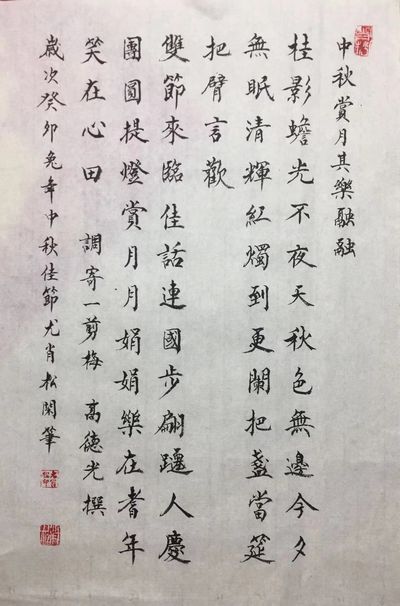 中秋賞月其樂融融
桂影蟾光不夜天秋色無邊今夕
無眠清輝紅燭到更闌把盞當筵
把臂言歡
雙節來臨佳話連國步翩躚人慶
團圓提燈賞月月娟娟樂在耆年
笑在心田 調寄一剪梅 高德光撰
歲次癸卯兔年中秋佳節尤肖松閑筆